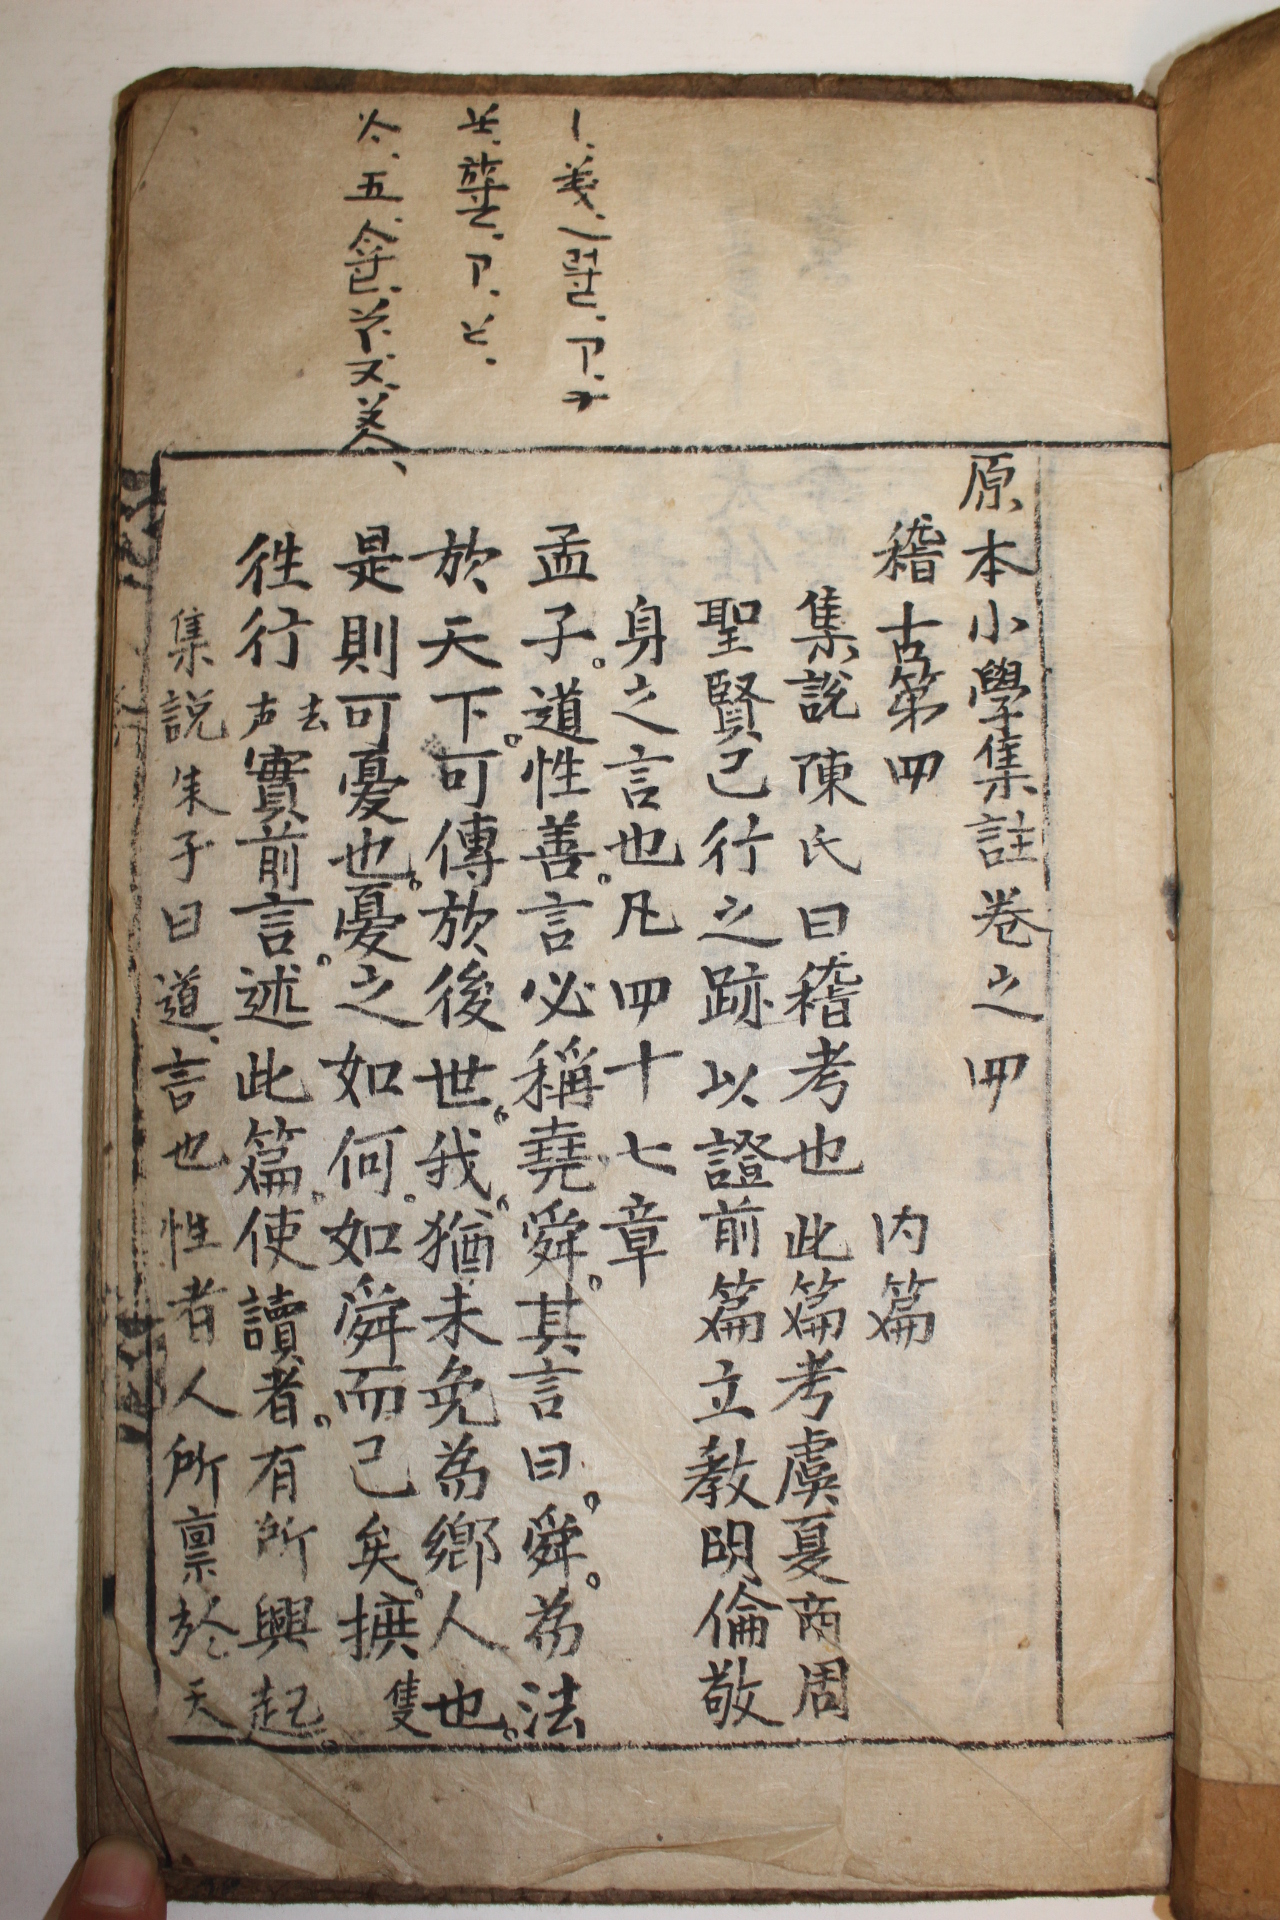 原本小學集註卷之四
稽古第四 內篇
集說陳氏曰稽考也此篇考虞夏商周
聖賢已行之跡以證前篇立教明倫敬
身之言也凡四十七章
孟子道性善言必稱堯舜其言曰舜為法
於天下可傳於後世我猶未免為鄉人也
是則可憂也憂之如何如舜而已矣摭隻
徃行去声實前言述此篇使讀者有所興起
集説朱子曰道言也性者人所禀於天